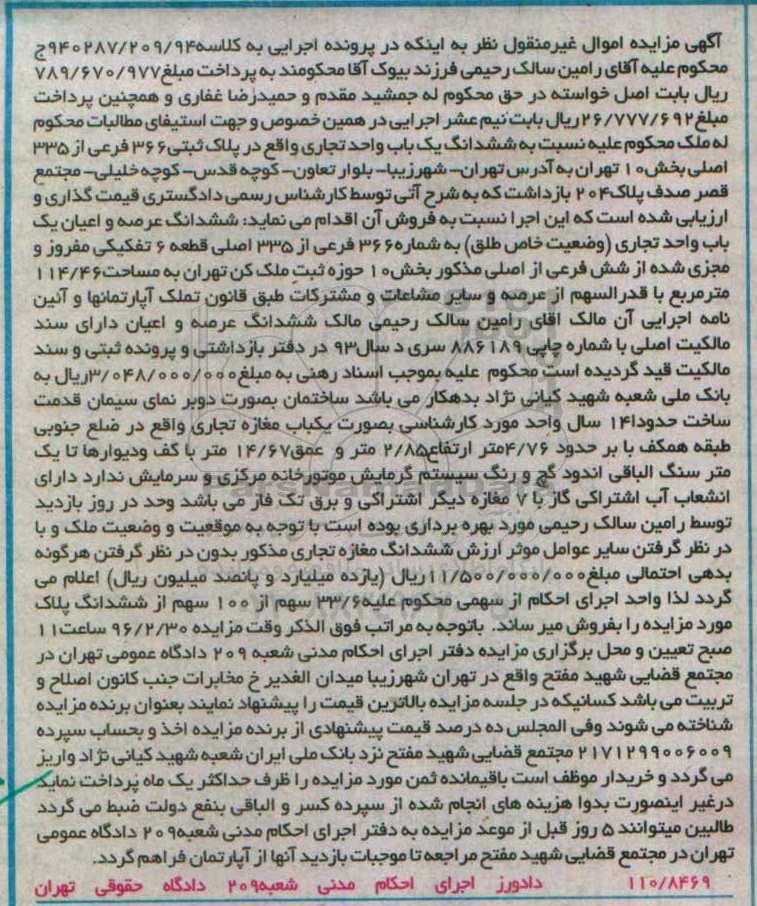 آگهی مزایده اموال غیرمنقول نظر به اینکه در پرونده اجرایی به کلاسه۹۴۰۲۸۷/۲۰۹/۹۴ج
محکوم علیه آقای رامین سالک رحیمی فرزند بیوک آقا محکومند به پرداخت مبلغ۷۸۹/۶۷۰/۹۷۷
ریال بابت اصل خواسته در حق محکوم له جمشید مقدم و حمیدرضا غفاری و همچنین پرداخت
مبلغ۲۶/۷۷۷/۶۹۲ریال بابت نیم عشر اجرایی در همین خصوص و جهت استیفای مطالبات محکوم
له ملک محکوم علیه نسبت به ششدانگ یک باب واحد تجاری واقع در پلاک ثبتی۳۶۶ فرعی از ۳۳۵
اصلی بخش۱۰ تهران به آدرس تهران– شهرزیبا– بلوار تعاون– کوچه قدس– کوچه خلیلی– مجتمع
قصر صدف پلاک۲۰۴ بازداشت که به شرح آتی توسط کارشناس رسمی دادگستری قیمت گذاری و
ارزیابی شده است که این اجرا نسبت به فروش آن اقدام می نماید: ششدانگ عرصه و اعیان یک
باب واحد تجاری (وضعیت خاص طلق) به شماره۳۶۶ فرعی از ۳۳۵ اصلی قطعه ۶ تفکیکی مفروز و
مجزی شده از شش فرعی از اصلی مذکور بخش۱۰ حوزه ثبت ملک کن تهران به مساحت۱۱۴/۴۶
مترمربع با قدرالسهم از عرصه و سایر مشاعات و مشترکات طبق قانون تملک آپارتمانها و آئین
نامه اجرایی آن مالک اقای رامین سالک رحیمی مالک ششدانگ عرصه و اعیان دارای سند
مالکیت اصلی با شماره چاپی ۸۸۶۱۸۹ سری د سال۹۳ در دفتر بازداشتی و پرونده ثبتی و سند
مالکیت قید گردیده است محکوم علیه بموجب اسناد رهنی به مبلغ۳/۰۴۸/۰۰۰/۰۰۰ریال به
بانک ملی شعبه شهید کیانی نژاد بدهکار می باشد ساختمان بصورت دوبر نمای سیمان قدمت
ساخت حدودا۱۴ سال واحد مورد کارشناسی بصورت یکباب مغازه تجاری واقع در ضلع جنوبی
طبقه همکف با بر حدود ۴/۷۶متر ارتفاع۲/۸۵ متر و عمق۱۴/۶۷ متر با کف ودیوارها تا یک
متر سنگ الباقی اندود گچ و رنگ سیستم گرمایش موتورخانه مرکزی و سرمایش ندارد دارای
انشعاب آب اشتراکی گاز با ۷ مغازه دیگر اشتراکی و برق تک فاز می باشد وحد در روز بازدید
توسط رامین سالک رحیمی مورد بهره برداری بوده است با توجه به موقعیت و وضعیت ملک و با
در نظر گرفتن سایر عوامل موثر ارزش ششدانگ مغازه تجاری مذکور بدون در نظر گرفتن هرگونه
بدهی احتمالی مبلغ۱۱/۵۰۰/۰۰۰/۰۰۰ریال (یازده میلیارد و پانصد میلیون ریال) اعلام می
گردد لذا واحد اجرای احکام از سهمی محکوم علیه۳۳/۶ سهم از ۱۰۰ سهم از ششدانگ پلاک
مورد مزایده را بفروش میر ساند. باتوجه به مراتب فوق الذکر وقت مزایده ۹۶/۲/۳۰ ساعت۱۱
صبح تعیین و محل برگزاری مزایده دفتر اجرای احکام مدنی شعبه ۲۰۹ دادگاه عمومی تهران در
مجتمع قضایی شهید مفتح واقع در تهران شهرزیبا میدان الغدیر خ مخابرات جنب کانون اصلاح و
تربیت می باشد کسانیکه در جلسه مزایده بالاترین قیمت را پیشنهاد نمایند بعنوان برنده مزایده
شناخته می شوند وفی المجلس ده درصد قیمت پیشنهادی از برنده مزایده اخذ و بحساب سپرده
۲۱۷۱۲۹۹۰۰۶۰۰۹ مجتمع قضایی شهید مفتح نزد بانک ملی ایران شعبه شهید کیانی نژاد واریز
می گردد و خریدار موظف است باقیمانده ثمن مورد مزایده را ظرف حداکثر یک ماه پرداخت نماید
درغیر اینصورت بدوا هزینه های انجام شده از سپرده کسر و الباقی بنفع دولت ضبط می گردد
طالبین میتوانند ۵ روز قبل از موعد مزایده به دفتر اجرای احکام مدنی شعبه۲۰۹ دادگاه عمومی
تهران در مجتمع قضایی شهید مفتح مراجعه تا موجبات بازدید آنها از آپارتمان فراهم گردد.
۱۱۰/۸۴۶۹ دادورز اجرای احکام مدنی شعبه۲۰۹ دادگاه حقوقی تهران